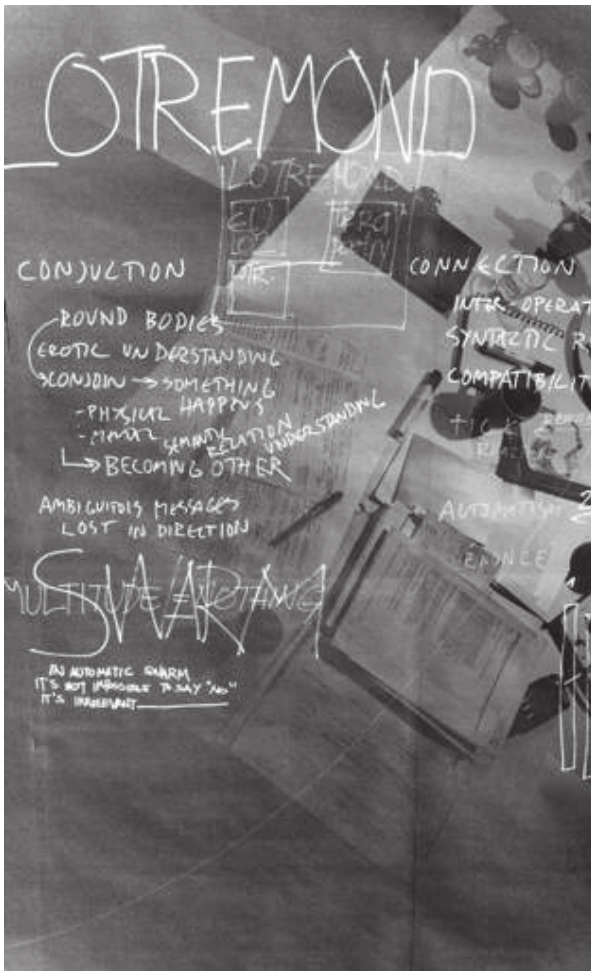 _OTREMOND
LOTREMOND
CONJUCTION
ROUND BODIES
EROTIC UNDERSTANDING
CONJOIN → SOMETHING
HAPPENS
- PHYSICAL
RELATION UNDERSTANDING
→ BECOMING OTHER
AMBIGUTOIS MESSAGES
LOST IN DIRECTION
MULTITUDE = NOTHING
SWARM
IN AUTOMATIC SWARM
IT'S NOT IMPOSSIBLE TO SAY "NO"
IT'S IRRELEVANT
CONNECTION
INTER-OPERAT
SYNTACTIC R
COMPATIBILIT
AUTOMATISM
ENONCE